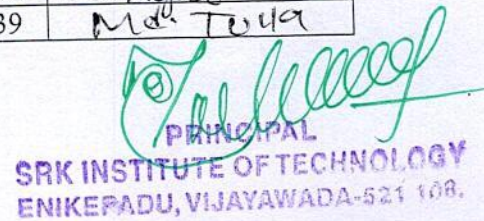 39 Md. Tulla
PRINCIPAL
SRK INSTITUTE OF TECHNOLOGY
ENIKEPADU, VIJAYAWADA-521 108.